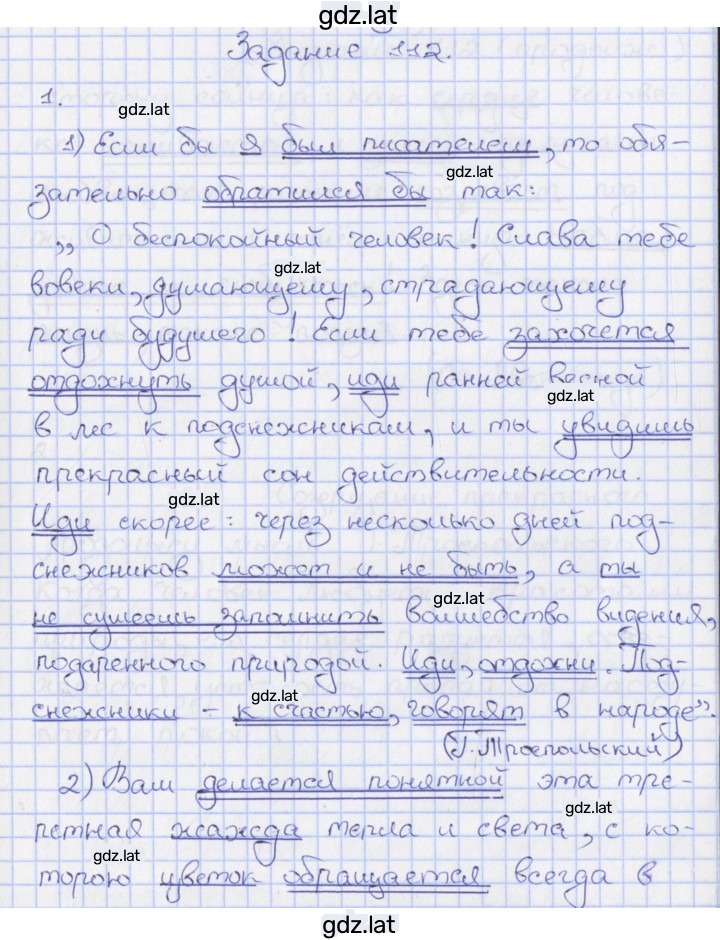 gdz.lat
Задание 112.
1.
gdz.lat
1) Если бы я был писателем, то обя-
gdz.lat
зательно обратился бы так:
„О беспокойный человек! Слава тебе
gdz.lat
вовеки, думающему, страдающему
ради будущего! Если тебе захочется
отдохнуть душой, иди ранней весной
gdz.lat
в лес к подснежникам, и ты увидишь
прекрасный сон действительности.
gdz.lat
Иди скорее: через несколько дней под-
снежников может и не быть, а ты
gdz.lat
не сумеешь запомнить волшебство видения,
подаренного природой. Иди, отдохни. Под-
gdz.lat
снежники – к счастью, говорят в народе".
(Г. Троепольский)
2) Вам делается понятной эта тре-
gdz.lat
петная жажда тепла и света, с ко-
gdz.lat
торою цветок обращается всегда в
gdz.lat